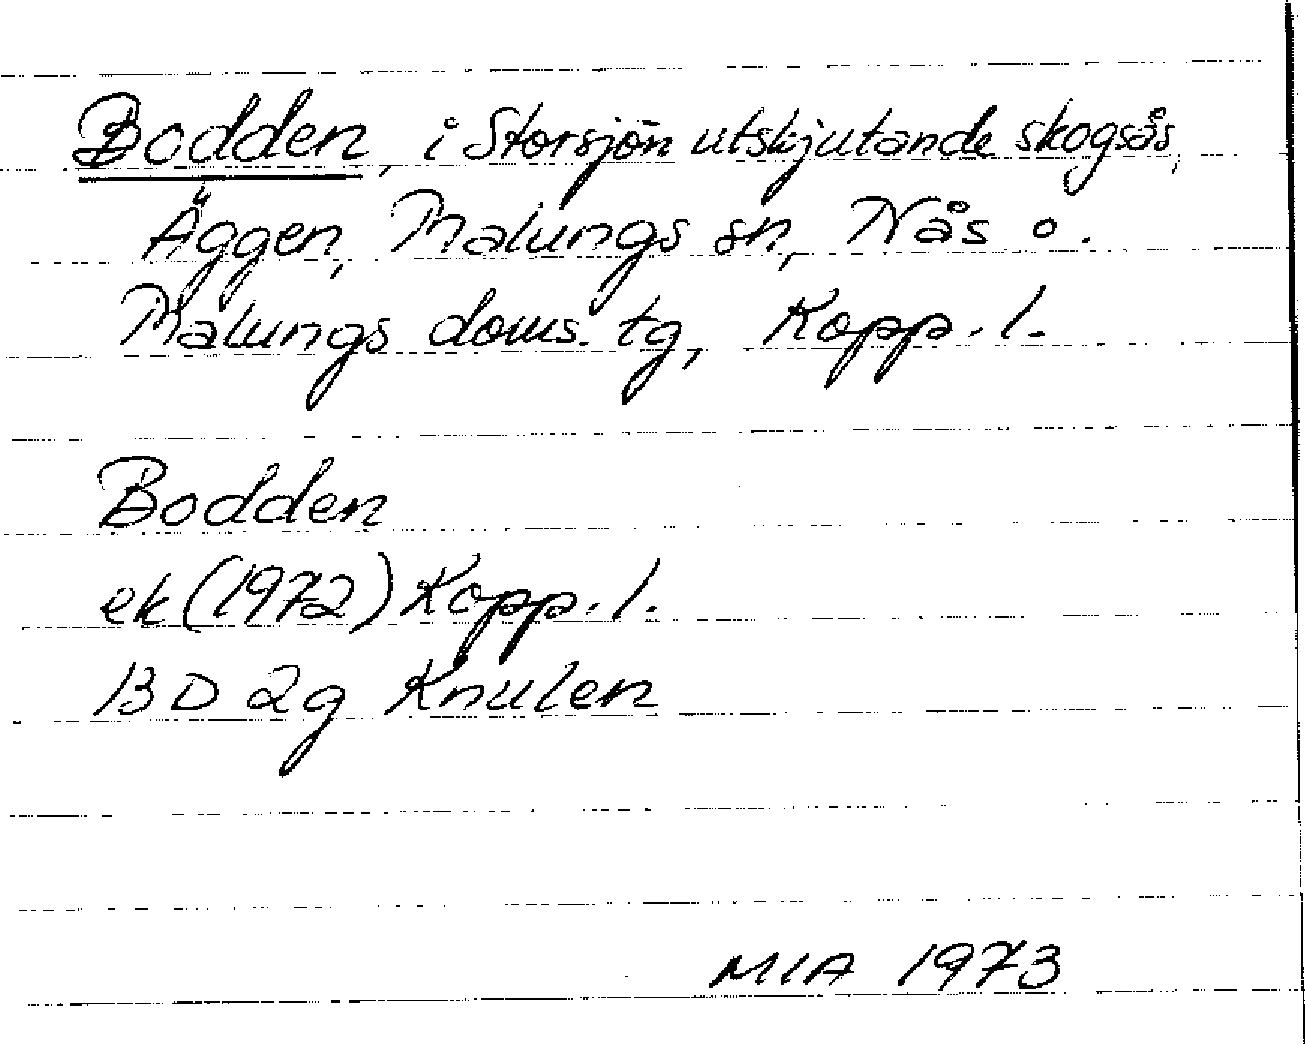 Bodden, i Storsjön utskjutande skogsås,
Äggen, Malungs sn, Nås o.
Malungs doms. tg, Kopp. l.
Bodden
ek (1972) Kopp. l.
13 D 2g Knulen
MIA 1973